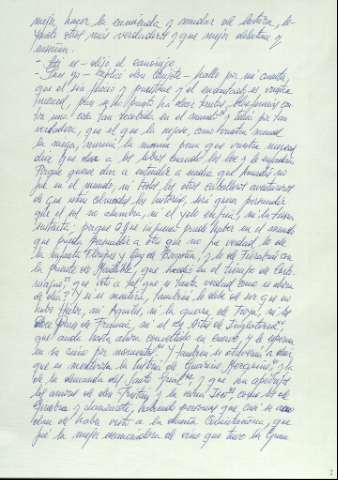 mejor hacer la enmienda y mudar de lectura, le-
yendo otros más verdaderos y que mejor deleiten y
enseñen.
- Así es - dijo el canónigo.
- Pues yo - replicó don Quijote - hallo por mi cuenta,
que el sin juicio y el encantado es vuestra
merced, pues se ha puesto a decir tantas blasfemias con-
tra una cosa tan recebida en el mundo y tenida por tan
verdadera, que el que la negase, como vuestra merced
la niega, merecía la mesma pena que vuestra merced
dice que da a los libros cuando los lee y le enfadan.
Porque querer dar a entender a nadie que Amadís no
fue en el mundo, ni todos los otros caballeros aventureros
de que están colmadas las historias, será querer persuadir
que el sol no alumbra, ni el yelo enfría, ni la tierra
sustenta; porque ¿qué ingenio puede haber en el mundo
que pueda persuadir a otro que no fue verdad lo de
la infanta Floripes y Guy de Borgoña, y lo de Fierabrás con
la puente de Mantible, que sucedió en el tiempo de Carlo-
magno, que voto a tal que es tanta verdad como es ahora
de día? Y si es mentira, también lo debe de ser que no
hubo Héctor, ni Aquiles, ni la guerra de Troya, ni los
Doce Pares de Francia, ni el rey Artús de Ingalaterra,
que anda hasta ahora convertido en cuervo, y le esperan
en su reino por momentos. Y también se atreverán a decir
que es mentirosa la historia de Guarino Mezquino, y la
de la demanda del Santo Grial, y que son apócrifos
los amores de don Tristán y la reina Iseo, como los de
Ginebra y Lanzarote, habiendo personas que casi se acuer-
dan de haber visto a la dueña Quintañona, que
fue la mejor escanciadora de vino que tuvo la Gran